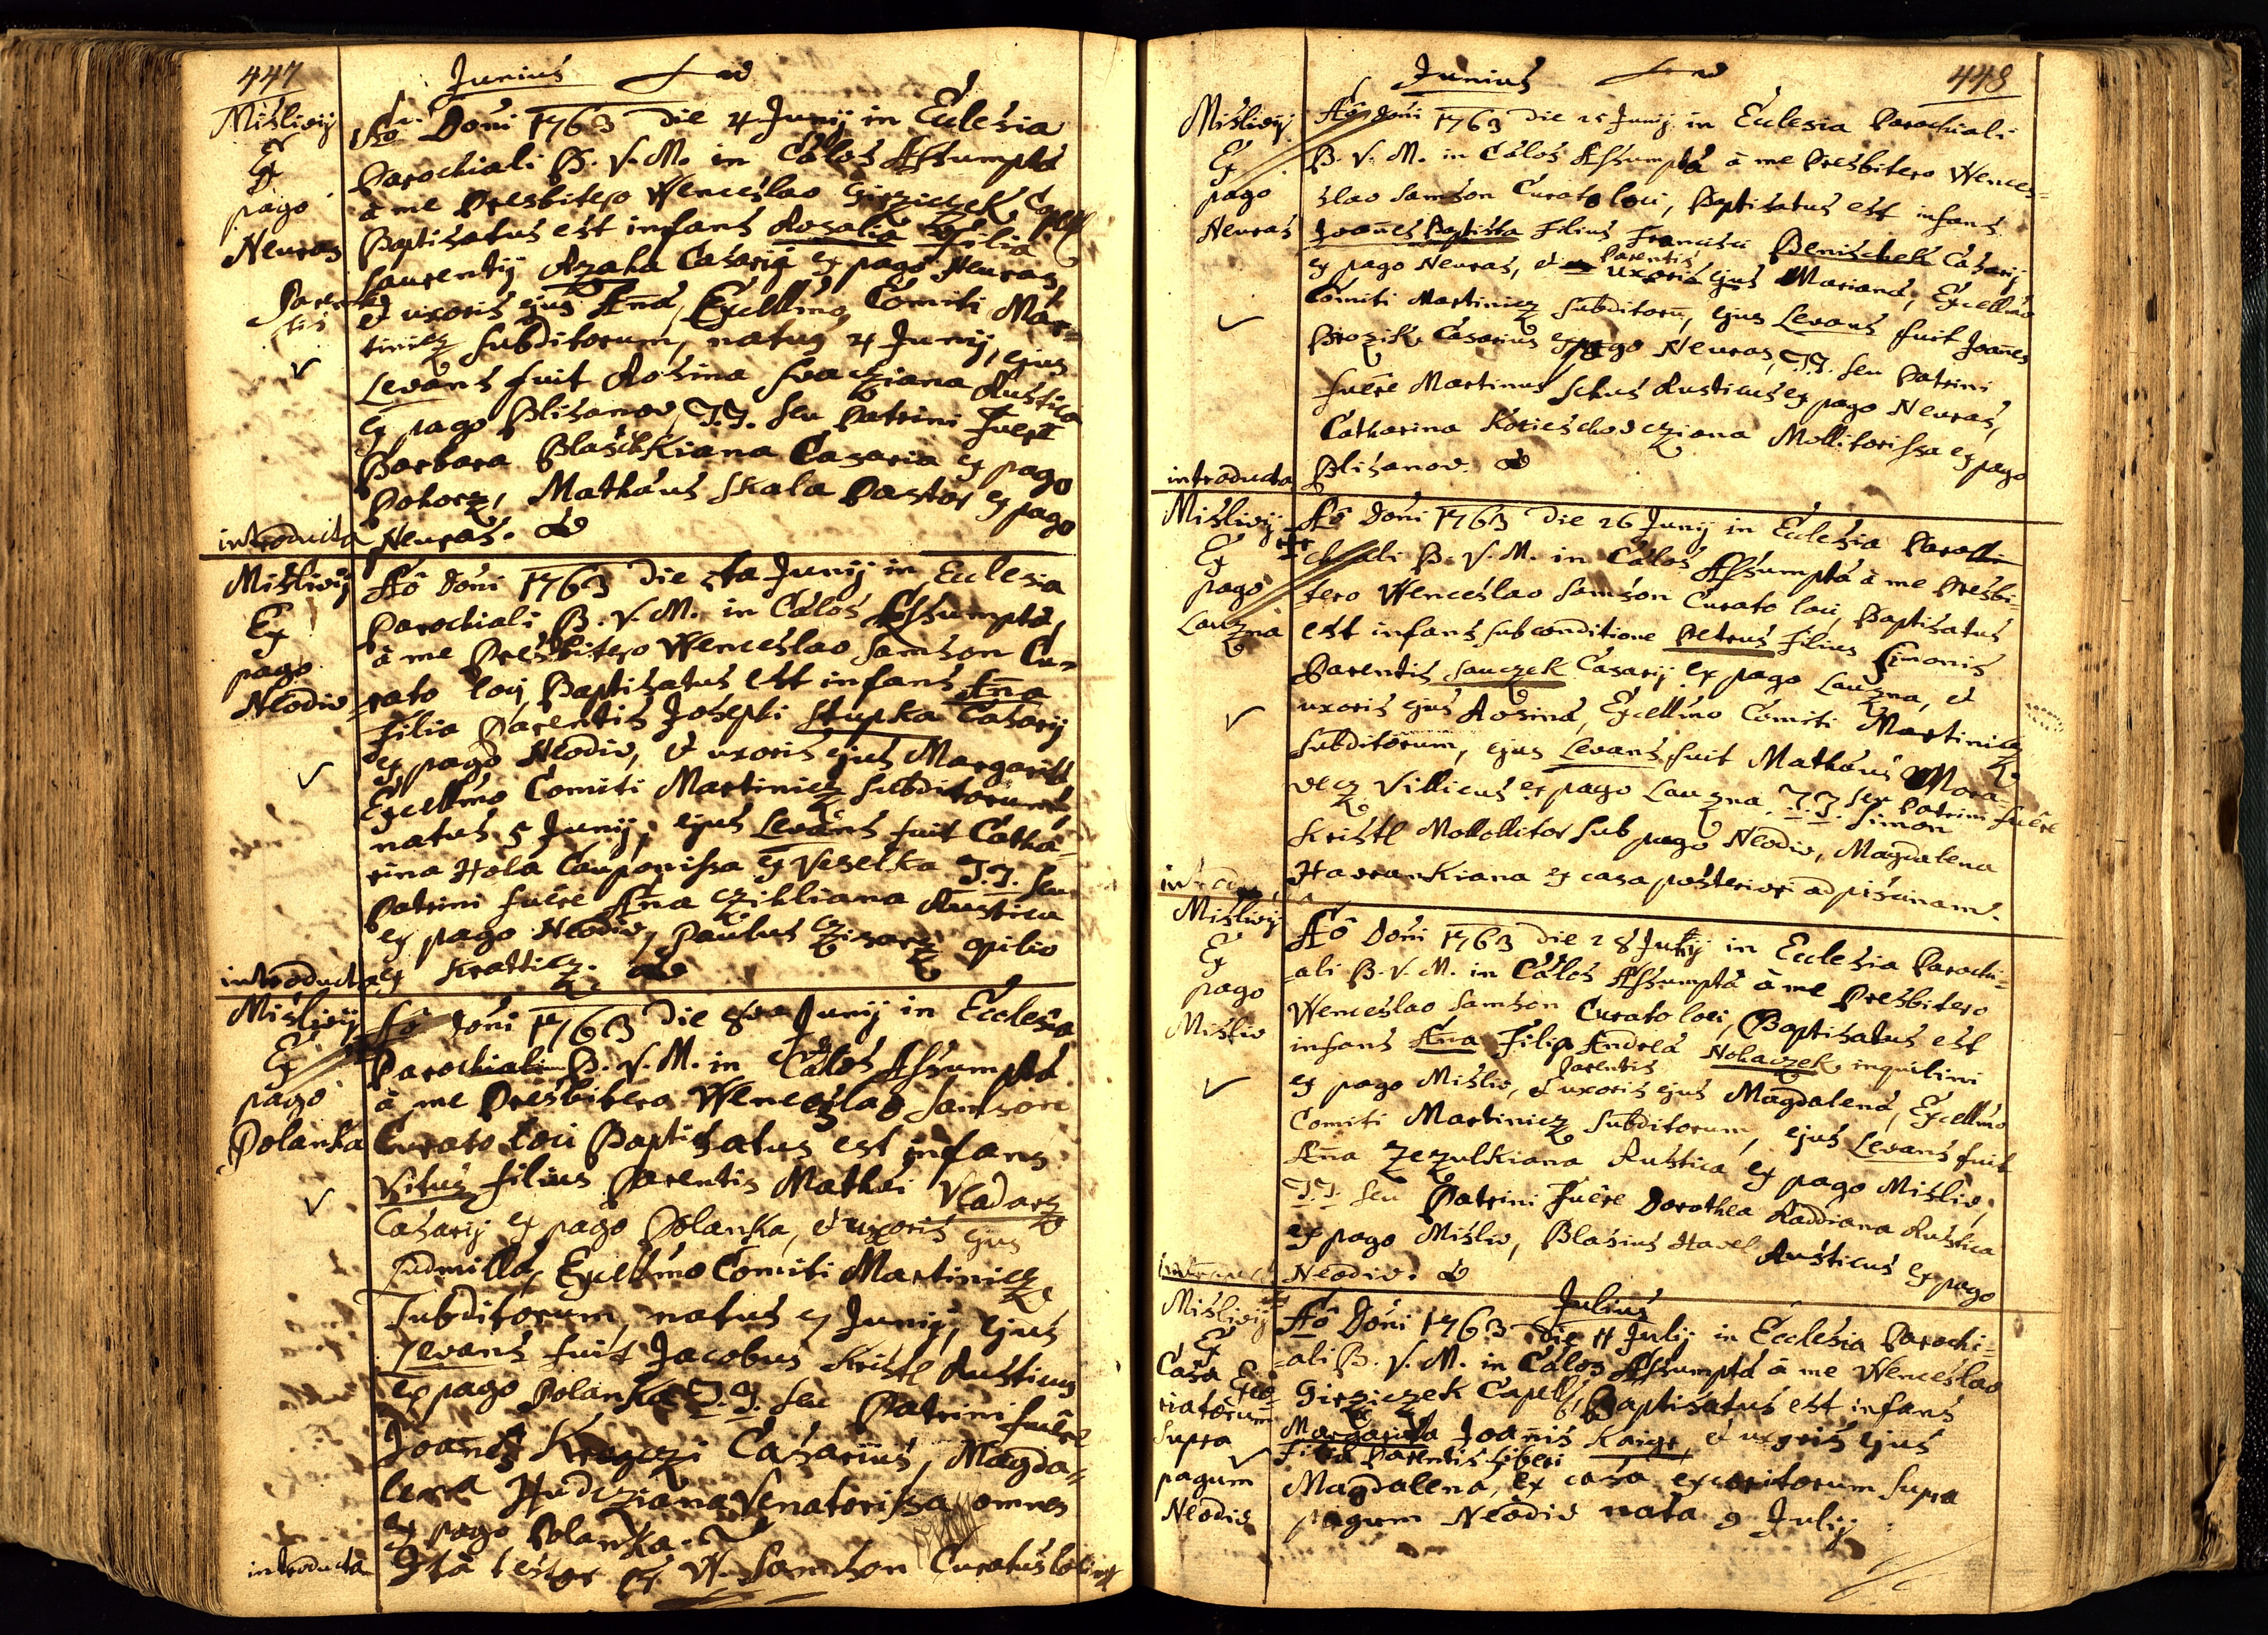 447
Junius
Mislivij
Ex
pago
Neuras
Parentis
introducta
Ao Doni 1763 die 4 Junij in Eclesia
Parochiali B. V. M. in Cælos Assumptâ
à me Presbitero Wenceslao Girziczek Capell
Baptisatus est infans Rosalia Filia
Laurentij Azaha Casarij ex pago Neuras
et uxoris ejus Anâ, Excellmo Comiti Mar=
tinicz subditorum, natus 4 Junij, ejus
Levans fuit Rosina Rustica
ex pago Blisanov, T.T. seu Patrini Fuere
Barbara Blasckiana Casaria ex pago
Pohorz, Mathæus Skala Pastor ex pago
Neuras.
Mislivij
Ex
pago
Neodiv
introducta
Ao Doni 1763 die 5ta Junij in Ecclesia
Parochiali B. V. M. in Cælos Assumptâ,
à me Presbitero Wenceslao Samson Cu=
rato loci, Baptisatus est infans Ana
Filia Parentis Josephi Stupka Casarij
ex pago Neodiv, et uxoris ejus Margaritâ
Excellmo Comiti Martinicz subditorum,
natus 5 Junij, ejus Levans fuit Catha=
rina Hola Cauponissa ex Veselka T.T. seu
Patrini fuêre Ana Czikliana Rustica
ex pago Neodiv, Paulus Czisarz opilio
ex Kratticz.
Mislivij
Ex
pago
Polanka
introducta
Ao Doni 1763 die 8va Junij in Ecclesia
Parochiali B. V. M. in Cælos Assumptâ
à me Presbitero Wenceslao Samson
Curato loci Baptisatus est infans
Vitus filius Parentis Mathæi Vladarz
Casarij ex pago Polanka, et uxoris ejus
Ludmilla, Excellmo Comiti Martinicz
Subditorum, natus 7 Junij, ejus
Levans fuit Jacobus Kristl Rusticus
ex pago Polanka T.T. seu Patrini fuêre
Joanes Kregczi Casarius, Magda=
lena Hudcziana Venatorissa omnes
ex pago Polanka.
Ità testor W. Samson Curatus loci
448
Junius
Mislivij
Ex
pago
Neuras
introducta
Ao Doni 1763 die 25 Junij in Eclesia Parochiali
B. V. M. in Cælos Assumptâ à me Presbitero Wences=
slao Samson Curato loci, Baptisatus est infans
Joañes Baptista Filius Francisci Benischek Casarij
Parentis
ex pago Neuras, et uxoris ejus Marianâ, Excellmo
Comiti Martinicz subditorũ, ejus Levans fuit Joañes
Brozik Casarius ex pago Neuras, T.T. seu Patrini
fuêre Martinus Schus Rusticus ex pago Neuras,
Catharina Kotieschovcziana Mollitorissa ex pago
Blisanov.
Mislivij
Ex
pago
Lauzna
Ao Doni 1763 die 26 Junij in Ecclesia Paro
chiali B. V. M. in Cælos Assumptâ à me Presbi=
tero Wenceslao Samson Curato loci, Baptisatus
est infans sub conditione Petrus filius Simonis
Parentis Sauczek Casarij ex pago Lauzna, et
uxoris ejus Rosinâ, Excellmo Comiti Martinicz
subditorum, ejus Levans fuit Mathæus Mora=
vecz Villicus ex pago Lauzna. T.T. seu Patrini fuêre
Simon
Kristl Mollitor sub pago Neodiv, Magdalena
Havrankiana ex casa posteriori ad piscinam.
Mislivij
Ex
pago
Misliv
Ao Doni 1763 die 28 Junij in Ecclesia Parochi=
=ali B. V. M. in Cælos Assumptâ à me Presbitero
Wenceslao Samson Curato loci, Baptisatus est
infans Ana Filia Andreâ Nohaczek inquilini
Parentis
ex pago Misliv, et uxoris ejus Magdalenâ, Excellmo
Comiti Martinicz subditorum, ejus Levans fuit
Ana Zezulkiana Rustica ex pago Misliv,
T.T. seu Patrini Fuêre Dorothea Raddiana Rustica
ex pago Misliv, Blasius Havel Rusticus ex pago
Neodiv.
Julius
Mislivij
Ex
Casa Exco
riatorum
supra
pagum
Neodiv
Ao Doni 1763 die 11 Julij in Ecclesia Parochi=
=ali B. V. M. in Cælos Assumptâ à me Wenceslao
Girziczek Capell, Baptisatus est infans
Margarita Joañis Kaigr, et uxoris ejus
Filia Parentis liberi
Magdalena, ex casa excoritorum supra
pagum Neodiv nata 9 Julij